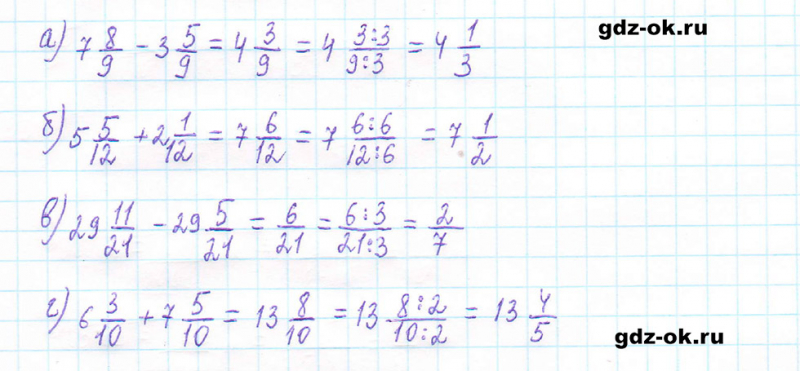 gdz-ok.ru
а) 7 8/9 - 3 5/9 = 4 3/9 = 4 3:3/9:3 = 4 1/3
б) 5 5/12 + 2 1/12 = 7 6/12 = 7 6:6/12:6 = 7 1/2
в) 29 11/21 - 29 5/21 = 6/21 = 6:3/21:3 = 2/7
г) 6 3/10 + 7 5/10 = 13 8/10 = 13 8:2/10:2 = 13 4/5
gdz-ok.ru